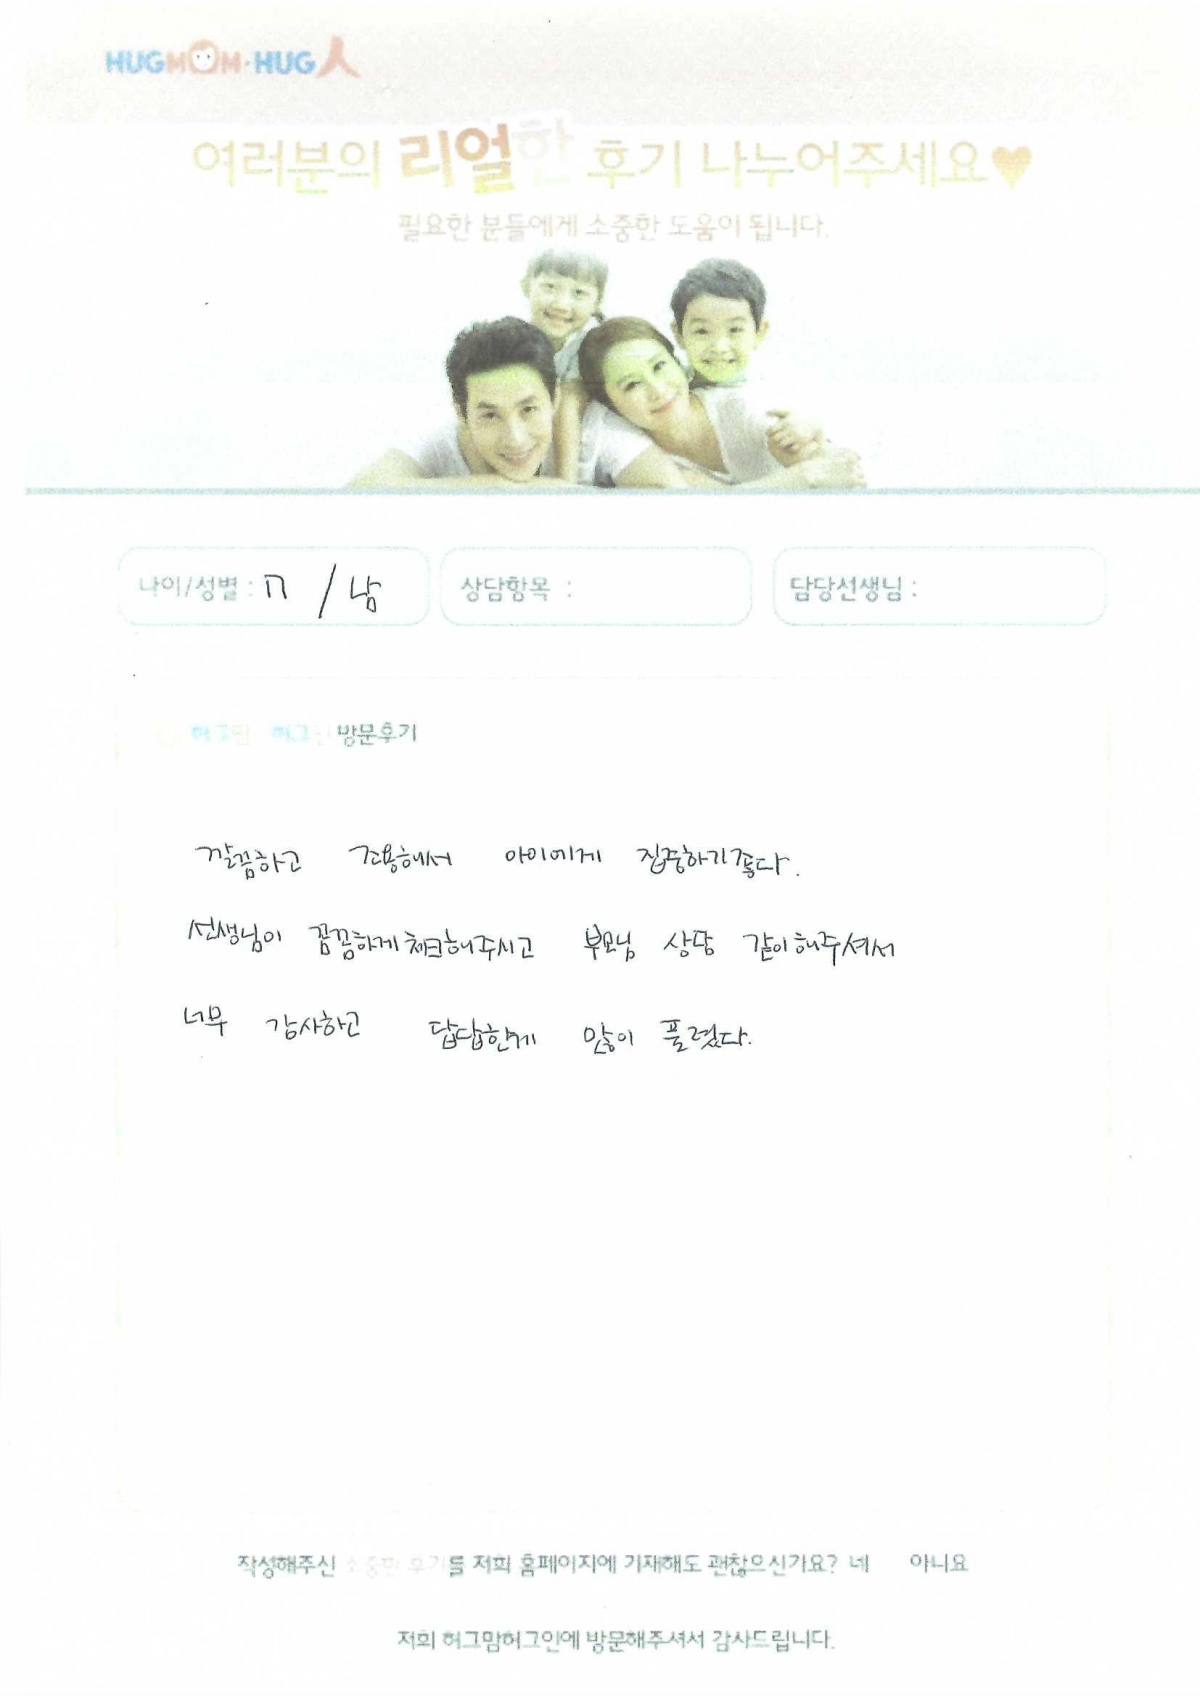 HUGMOM·HUG人
여러분의 리얼한 후기 나누어주세요♥
필요한 분들에게 소중한 도움이 됩니다.
나이/성별 : 17 / 남 상담항목 : 담당선생님 :
허그맘 허그인 방문후기
깔끔하고 조용해서 아이에게 집중하기좋다.
선생님이 꼼꼼하게체크해주시고 부모님 상담 같이해주셔서
너무 감사하고 답답한게 많이 풀렸다.
작성해주신 소중한 후기를 저희 홈페이지에 기재해도 괜찮으신가요? 네 아니요
저희 허그맘허그인에 방문해주셔서 감사드립니다.